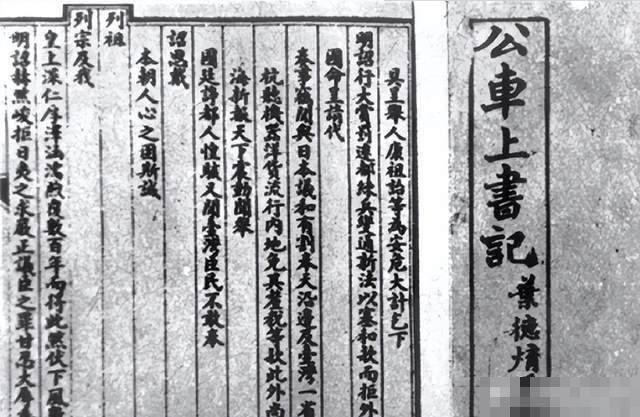 公車上書記
葉德
具呈舉人康祖詒等為安危大計乞下
明詔行大賞罰遷都練兵變通新法以塞和款而拒外
國命呈請代
奏事竊聞與日本議和有割奉天沿邊及臺灣一省
杭聽機器洋貨流行內地免其釐稅等款此外尚
海新報天下震動聞舉
國廷諍都人惶駭又聞臺灣臣民不敢奉
詔思戴
本朝人心之固斯誠
列祖
列宗及我
皇上深仁厚澤涵濡煦覆數百年而得此然伏下風
明詔赫然峻拒日夷之求嚴正議臣之罪甘忍大辱